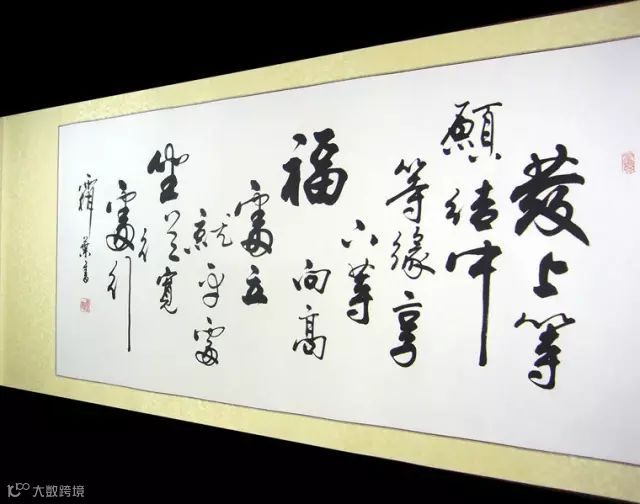 發上等
願結中
等緣享
下等
福向高
處立
就平處
坐從寬
處行
霜葉書
大数跨境